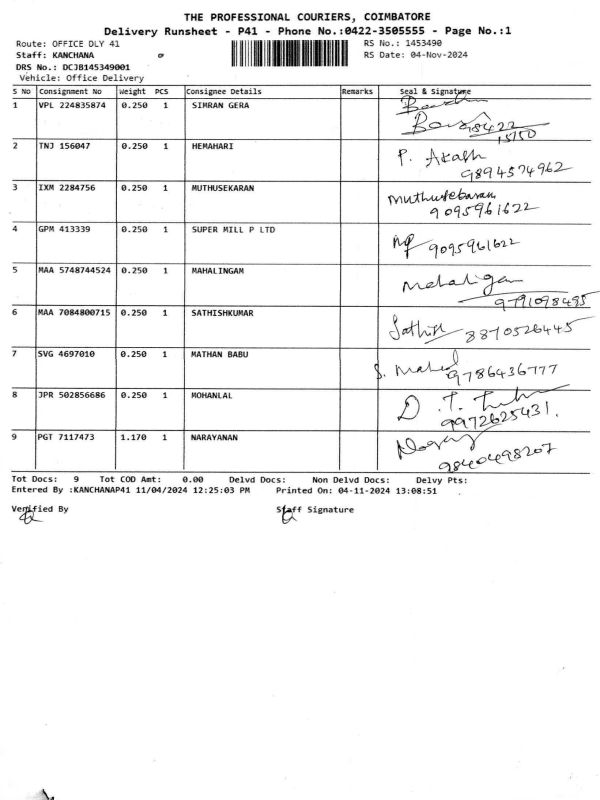 THE PROFESSIONAL COURIERS, COIMBATORE
Delivery Runsheet - P41 - Phone No.:0422-3505555 - Page No.:1
Route: OFFICE DLY 41 RS No.: 1453490
Staff: KANCHANA RS Date: 04-Nov-2024
DRS No.: DCJB145349001
Vehicle: Office Delivery
S No Consignment No Weight PCS Consignee Details Remarks Seal & Signature
1 VPL 224835874 0.250 1 SIMRAN GERA
98422
15150
2 TNJ 156047 0.250 1 HEMAHARI
P. Akash
9894574962
3 IXM 2284756 0.250 1 MUTHUSEKARAN
Muthusekaran
9095961622
4 GPM 413339 0.250 1 SUPER MILL P LTD
9095961622
5 MAA 5748744524 0.250 1 MAHALINGAM
Mahaligam
9791098495
6 MAA 7084800715 0.250 1 SATHISHKUMAR
Sathish 8870526445
7 SVG 4697010 0.250 1 MATHAN BABU
9786436777
8 JPR 502856686 0.250 1 MOHANLAL
9972625431.
9 PGT 7117473 1.170 1 NARAYANAN
9840498207
Tot Docs: 9 Tot COD Amt: 0.00 Delvd Docs: Non Delvd Docs: Delvy Pts:
Entered By :KANCHANAP41 11/04/2024 12:25:03 PM Printed On: 04-11-2024 13:08:51
Verified By Staff Signature